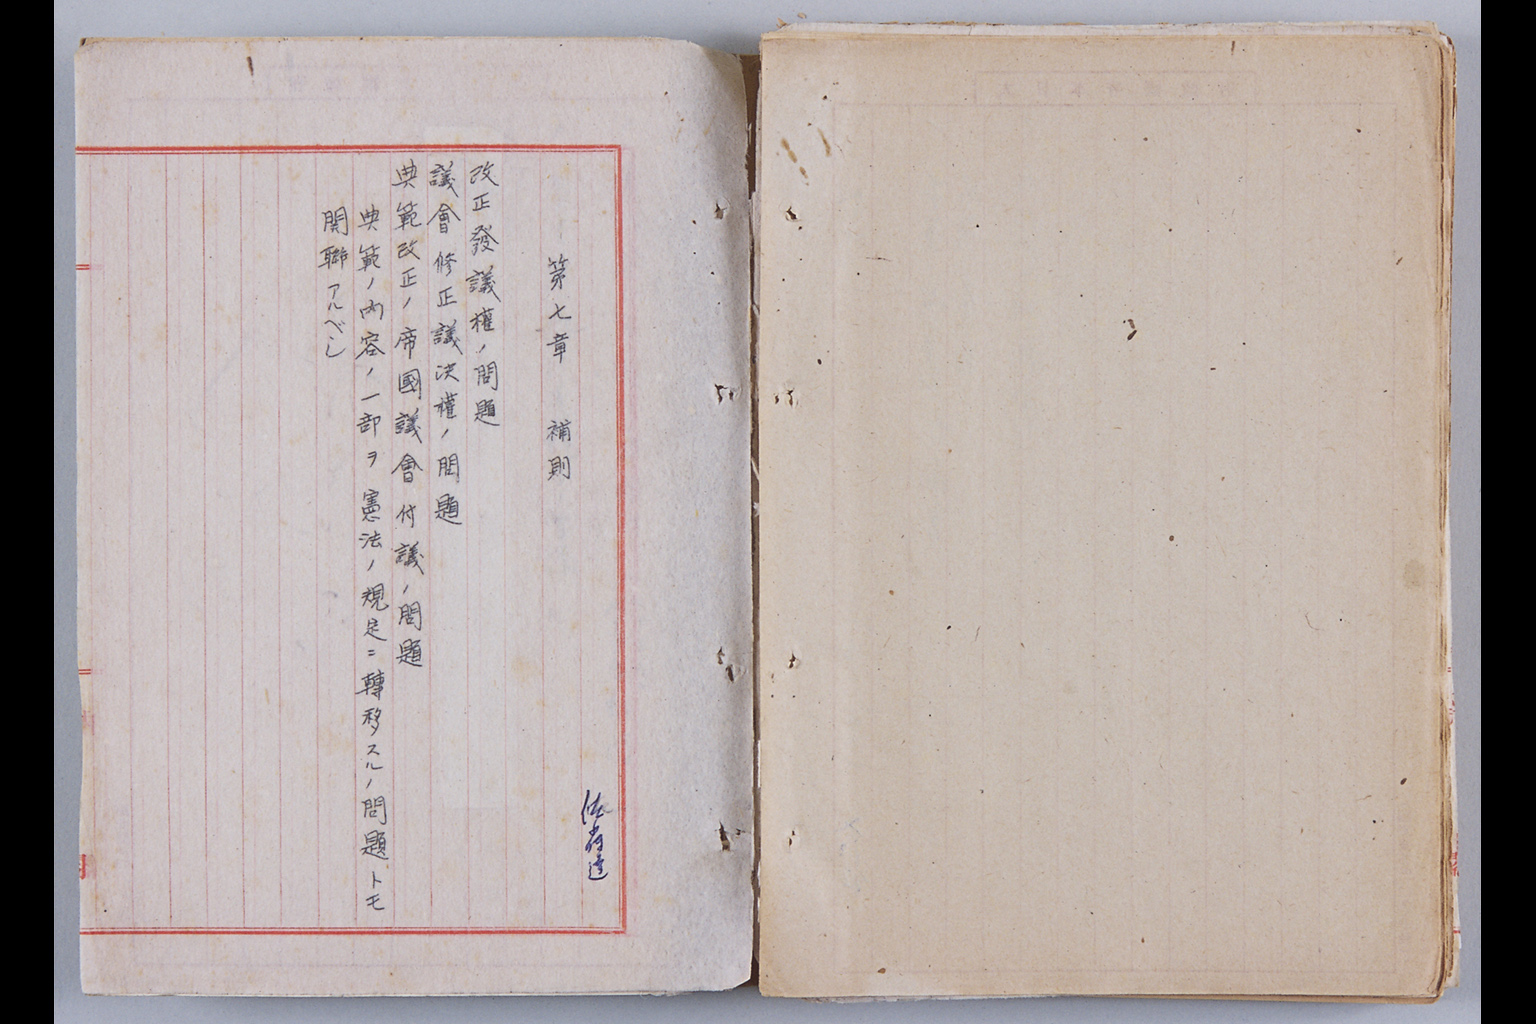 佐藤達
第七章　補則
改正發議權ノ問題
議會修正議決權ノ問題
典範改正ノ帝國議會付議ノ問題
典範ノ内容ノ一部ヲ憲法ノ規定ニ轉移スルノ問題トモ
関聯アルベシ